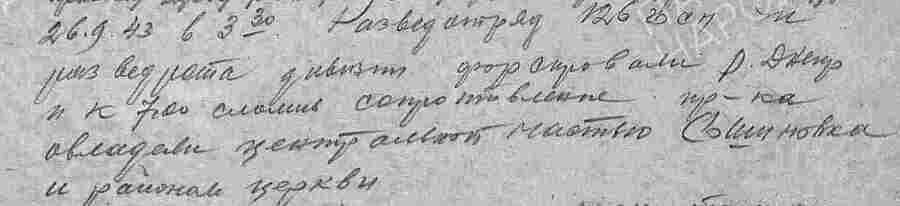 26.9.43 в 3 30. Разведотряд 126 сп и
разведрота дивизии форсировали р. Днепр
и к 7.00 сломив сопротивление пр-ка
овладели центральной частью Сошиновка
и районом церкви